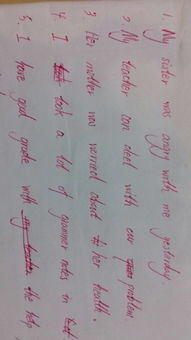 1. My sister was angry with me yesterday.
2. My teacher can deel with our problem
3. Her mother was worried about her health.
4. I took a lot of grammer notes in
5. I have good grade with the help